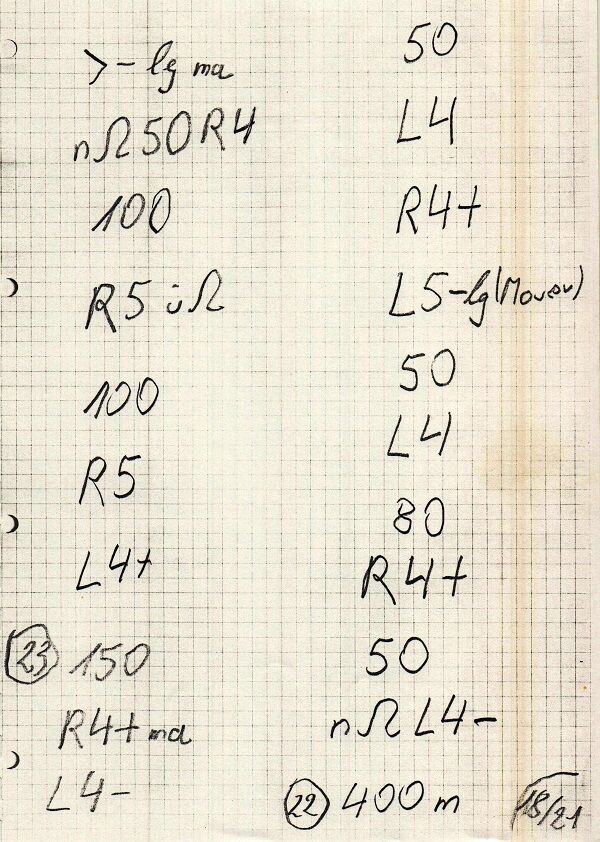 >- lg ma
nΩ 50 R4
100
R5 üΩ
100
R5
L4+
23 150
R4+ ma
L4-
50
L4
R4+
L5-lg (Mauer)
50
L4
80
R4+
50
nΩ L4-
22 400 m
18/21